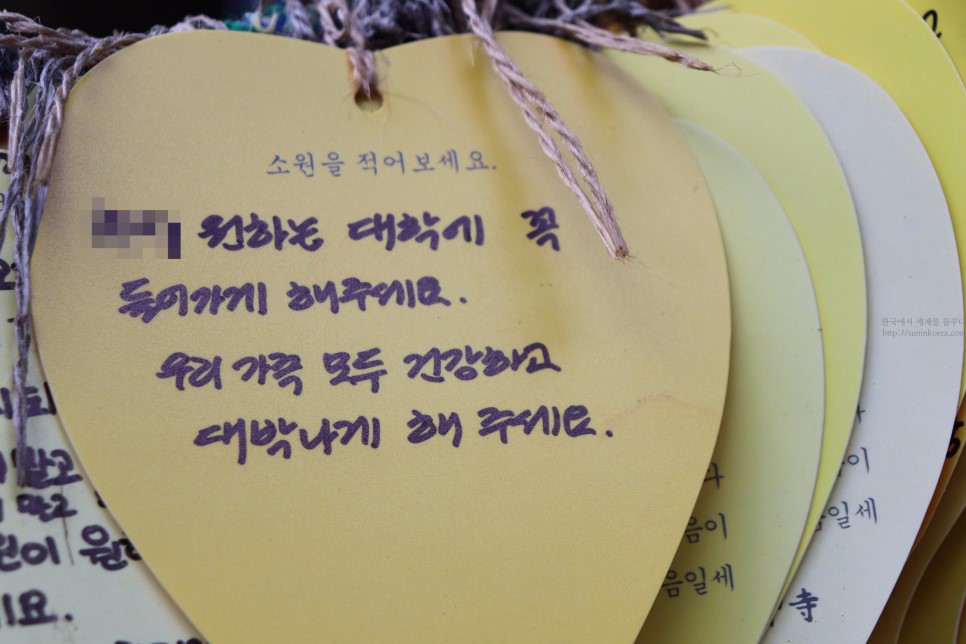 소원을 적어보세요.
원하는 대학에 꼭
들어가게 해주세요.
우리 가족 모두 건강하고
대박나게 해 주세요.
한국에서 세계를 꿈꾸다
http://suminkorea.com
말고
말고
원이 원하
요.
다
음이
음일세
이
음일세
寺